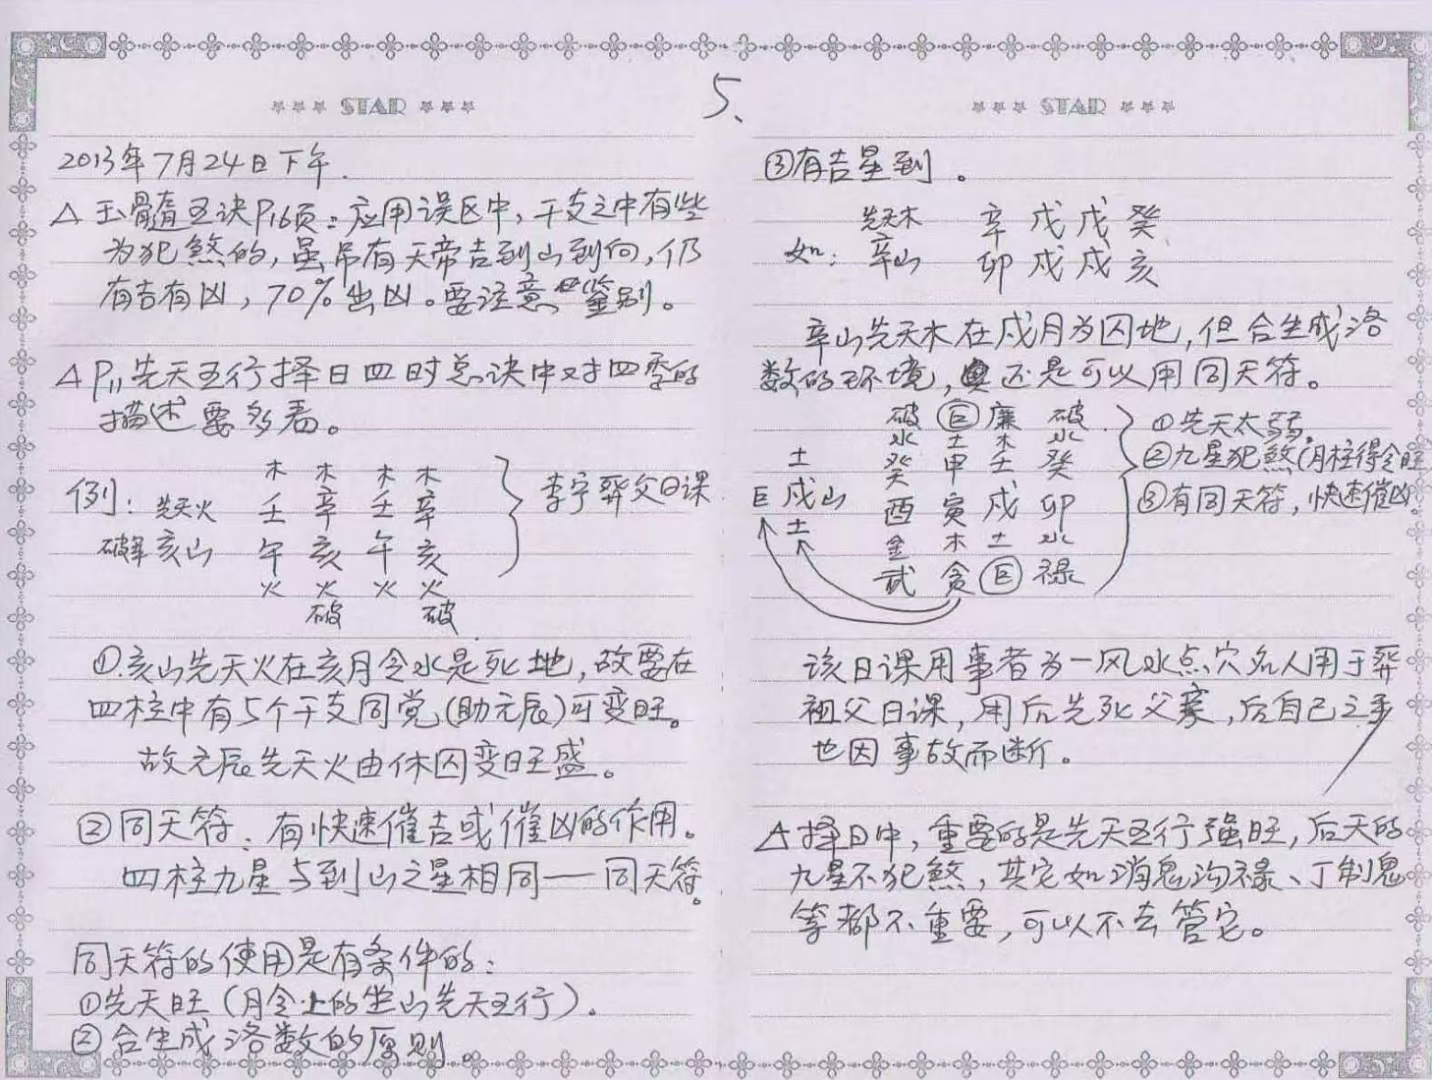 5、
*** STAR ***
2013年7月24日下午.
△ 玉髓五诀P16页：应用误区中，干支之中有些
为犯煞的，虽吊有天帝吉到山到向，仍
有吉有凶，70%出凶。要注意鉴别。
△ P11先天五行择日四时总诀中对四季的
描述要多看。
木 木 木 木
例：先天火 壬 辛 壬 辛 李宇葬父日课
破军亥山 午 亥 午 亥
火 火 火 火
破 破
①亥山先天火在亥月令水是死地，故要在
四柱中有5个干支同党(助元辰)可变旺。
故元辰先天火由休囚变旺盛。
②同天符：有快速催吉或催凶的作用。
四柱九星与到山之星相同——同天符。
同天符的使用是有条件的：
①先天旺（月令上的坐山先天五行）。
②合生成洛数的原则。
*** STAR ***
③有吉星到。
先天木 辛 戊 戊 癸
如：辛山 卯 戌 戌 亥
辛山先天木在戌月为囚地，但合生成洛
数的环境，还是可以用同天符。
破 巨 廉 破 ①先天太弱。
水 土 木 水
土 癸 甲 壬 癸 ②九星犯煞(月柱得令旺
巨戌山 酉 寅 戌 卯 ③有同天符，快速催凶。
土 金 木 土 水
武 贪 巨 禄
该日课用事者为一风水点穴名人用于葬
祖父日课，用后先死父亲，后自己之手
也因事故而断。
△择日中，重要的是先天五行强旺，后天的
九星不犯煞，其它如消息沟禄、丁制鬼
等都不重要，可以不去管它。